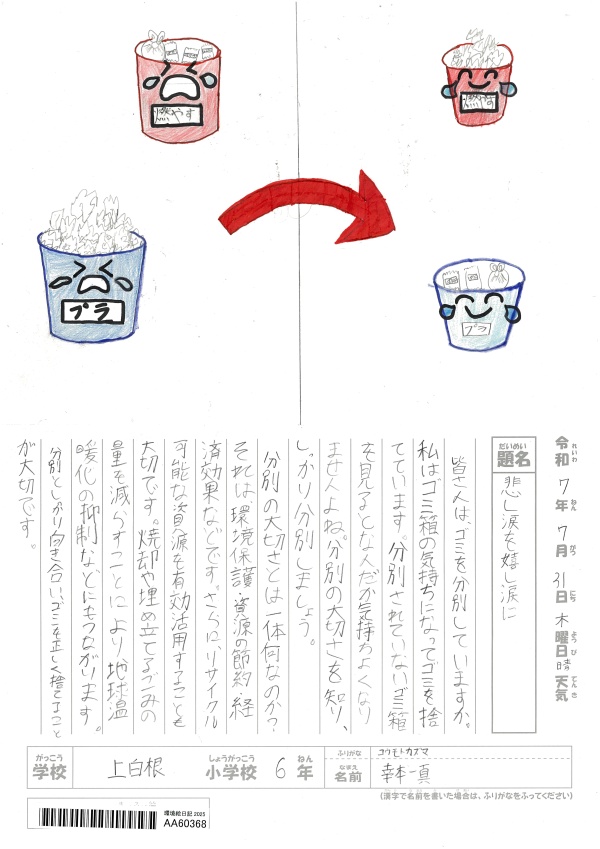 燃やす
プラ
燃やす
プラ
令和7年7月31日木曜日晴天気
れいわ ねん がつ にち ようび てんき
だいめい
題名 悲し涙を嬉し涙に
皆さんは、ゴミを分別していますか。
私はゴミ箱の気持ちになってゴミを捨
てています。分別されていないゴミ箱
を見るとなんだか気持ちわよくなり
ませんよね。分別の大切さを知り、
しっかり分別しましょう。
分別の大切さとは一体何なのか？
それは、環境保護・資源の節約・経
済効果などです。さらに、リサイクル
可能な資源を有効活用することも
大切です。焼却や埋め立てるごみの
量を減らすことにより地球温
暖化の抑制などにもつながります。
分別としっかり向き合い、ゴミを正しく捨てること
が大切です。
がっこう しょうがっこう ねん
学校 上白根 小学校 6年
ふりがな コウモトカズマ
なまえ
名前 幸本一真
(漢字で名前を書いた場合は、ふりがなをふってください)
環境絵日記 2025
AA60368